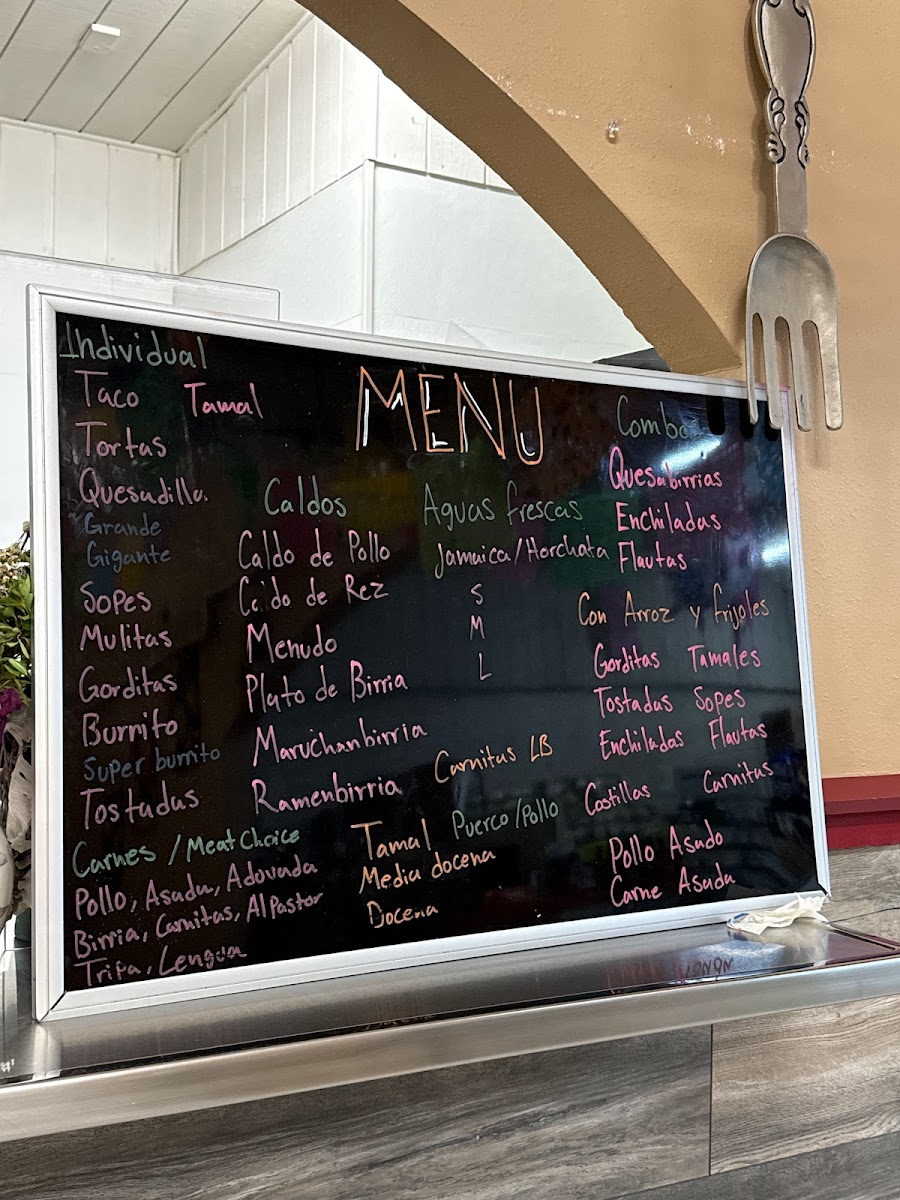 MENU
Individual
Taco Tamal
Tortas
Quesadilla.
Grande
Gigante
Sopes
Mulitas
Gorditas
Burrito
Super burrito
Tostadas
Carnes / Meat Choice
Pollo, Asada, Adovada
Birria, Carnitas, Al Pastor
Tripa, Lengua
Caldos
Caldo de Pollo
Caldo de Rez
Menudo
Plato de Birria
Maruchanbirria
Ramenbirria
Aguas frescas
Jamaica/Horchata
S
M
L
Carnitas LB
Tamal Puerco/Pollo
Media docena
Docena
Combo
Quesabirrias
Enchiladas
Flautas
Con Arroz y frijoles
Gorditas Tamales
Tostadas Sopes
Enchiladas Flautas
Costillas Carnitas
Pollo Asado
Carne Asada